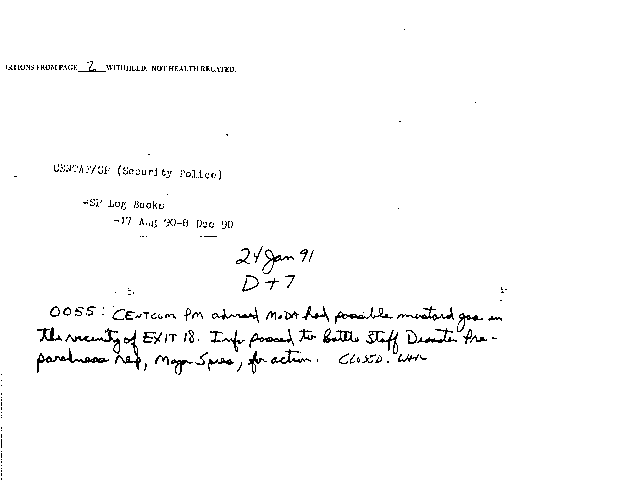 TIONS FROM PAGE 2 WITHHELD. NOT HEALTH RELATED.
CENTAF/SP (Security Police)
-SP Log Books
-17 Aug 90-8 Dec 90
24 Jan 91
D+7
0055: CENTCOM PM advised MODA had possible mustard gas in
the vicinity of EXIT 18. Info passed to Battle Staff Disaster Pre-
paredness rep, Major, for action. CLOSED.